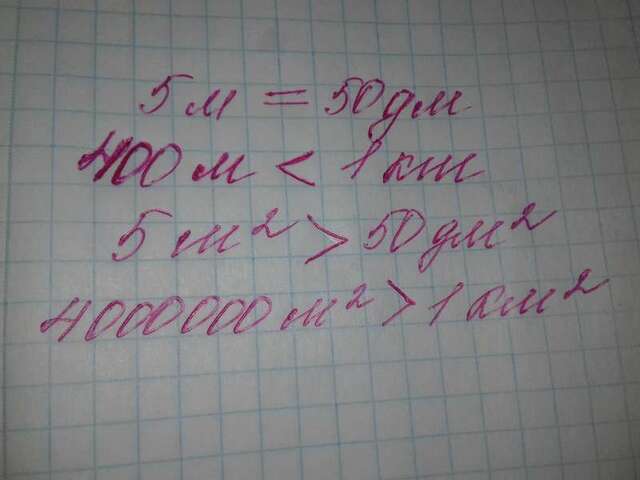 5 м = 50 дм
400 м < 1 км
5 м² > 50 дм²
4000000 м² > 1 км²